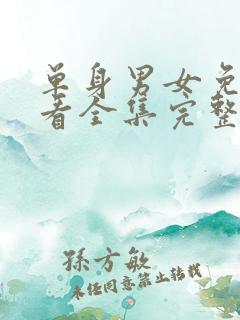 单身男女免
看全集完整
孫方敏
未经同意禁止转载